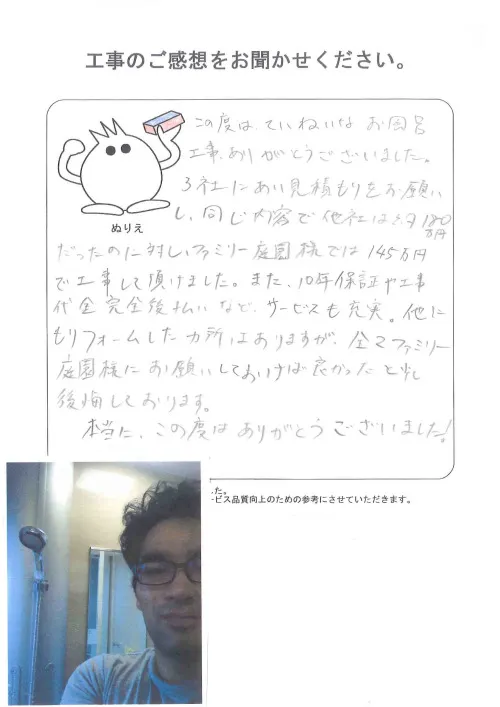 工事のご感想をお聞かせください。
この度は、ていねいなお風呂
工事、ありがとうございました。
3社にあい見積もりをお願い
し、同じ内容で他社は約180
万円
ぬりえ
だったのに対しファミリー庭園様では145万円
で工事して頂けました。また、10年保証や工事
代金完全後払いなど、サービスも充実。他に
もリフォームした カ所はありますが、全てファミリー
庭園様にお願いしておけば良かったと少し
後悔しております。
本当に、この度はありがとうございました!
た。
ービス品質向上のための参考にさせていただきます。